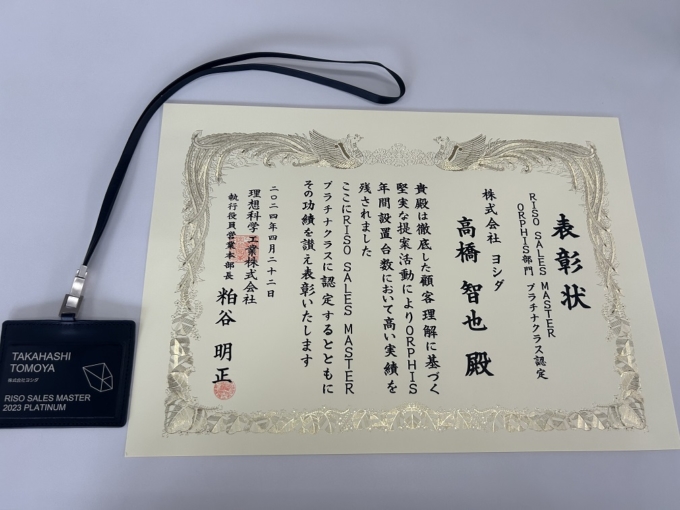 表彰状
RISO SALES MASTER
ORPHIS部門 プラチナクラス認定
株式会社 ヨシダ
高橋 智也 殿
貴殿は徹底した顧客理解に基づく
堅実な提案活動によりORPHIS
年間設置台数において高い実績を
残されました
ここにRISO SALES MASTER
プラチナクラスに認定するとともに
その功績を讃え表彰いたします
二〇二四年四月二十二日
理想科学工業株式会社
執行役員営業本部長 粕谷 明正
TAKAHASHI
TOMOYA
株式会社ヨシダ
RISO SALES MASTER
2023 PLATINUM